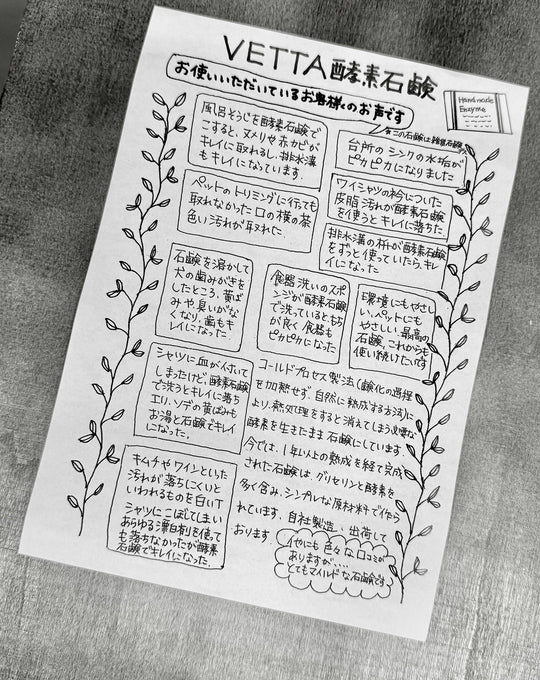 VETTA酵素石鹸
お使いいただいているお客様のお声です
Handmade
Enzyme
※この石鹸は雑貨石鹸
風呂そうじを酵素石鹸で
こすると、ヌメリや赤カビが
キレイに取れるし、排水溝
もキレイになっています。
台所のシンクの水垢が
ピカピカになりました
ペットのトリミングに行っても
取れなかった口の横の茶
色い汚れが取れた.
ワイシャツの衿についた
皮脂汚れが酵素石鹸
を使うとキレイに落ちた
排水溝の汚れが酵素石鹸
をずっと使っていたら、キレ
イになった。
石鹸を溶かして
犬の歯みがきを
したところ、黄ば
みや、臭いがな
くなり、歯もキ
レイになった
食器洗いのスポ
ンジが酵素石鹸
で洗っているともち
が良く食器も
ピカピカになった
環境にもやさし
い、ペットにも
やさしい、最高の
石鹸、これからも
使い続けたいです
シャツに血が付いて
しまったけど、酵素石鹸
で洗うとキレイに落ち
エリ、ソデの黄ばみも
お湯と石鹸でキレイ
になった。
キムチやワインといった
汚れが落ちにくいと
いわれるものを白いT
シャツにこぼしてしまい
あらゆる漂白剤を使って
も落ちなかったが酵素
石鹸でキレイになった.
コールドプロセス製法(鹸化の過程
を加熱せず、自然に熟成する方法)に
より、熱処理をすると消えてしまう必要な
酵素を生きたまま石鹸にしています.
今では、1年以上の熟成を経て完成
された石鹸は、グリセリンと酵素を
多く含み、シンプルな原材料で作ら
れています. 自社製造、出荷して
おります
他にも色々な口コミが
ありますが....
とてもマイルドな石鹸です